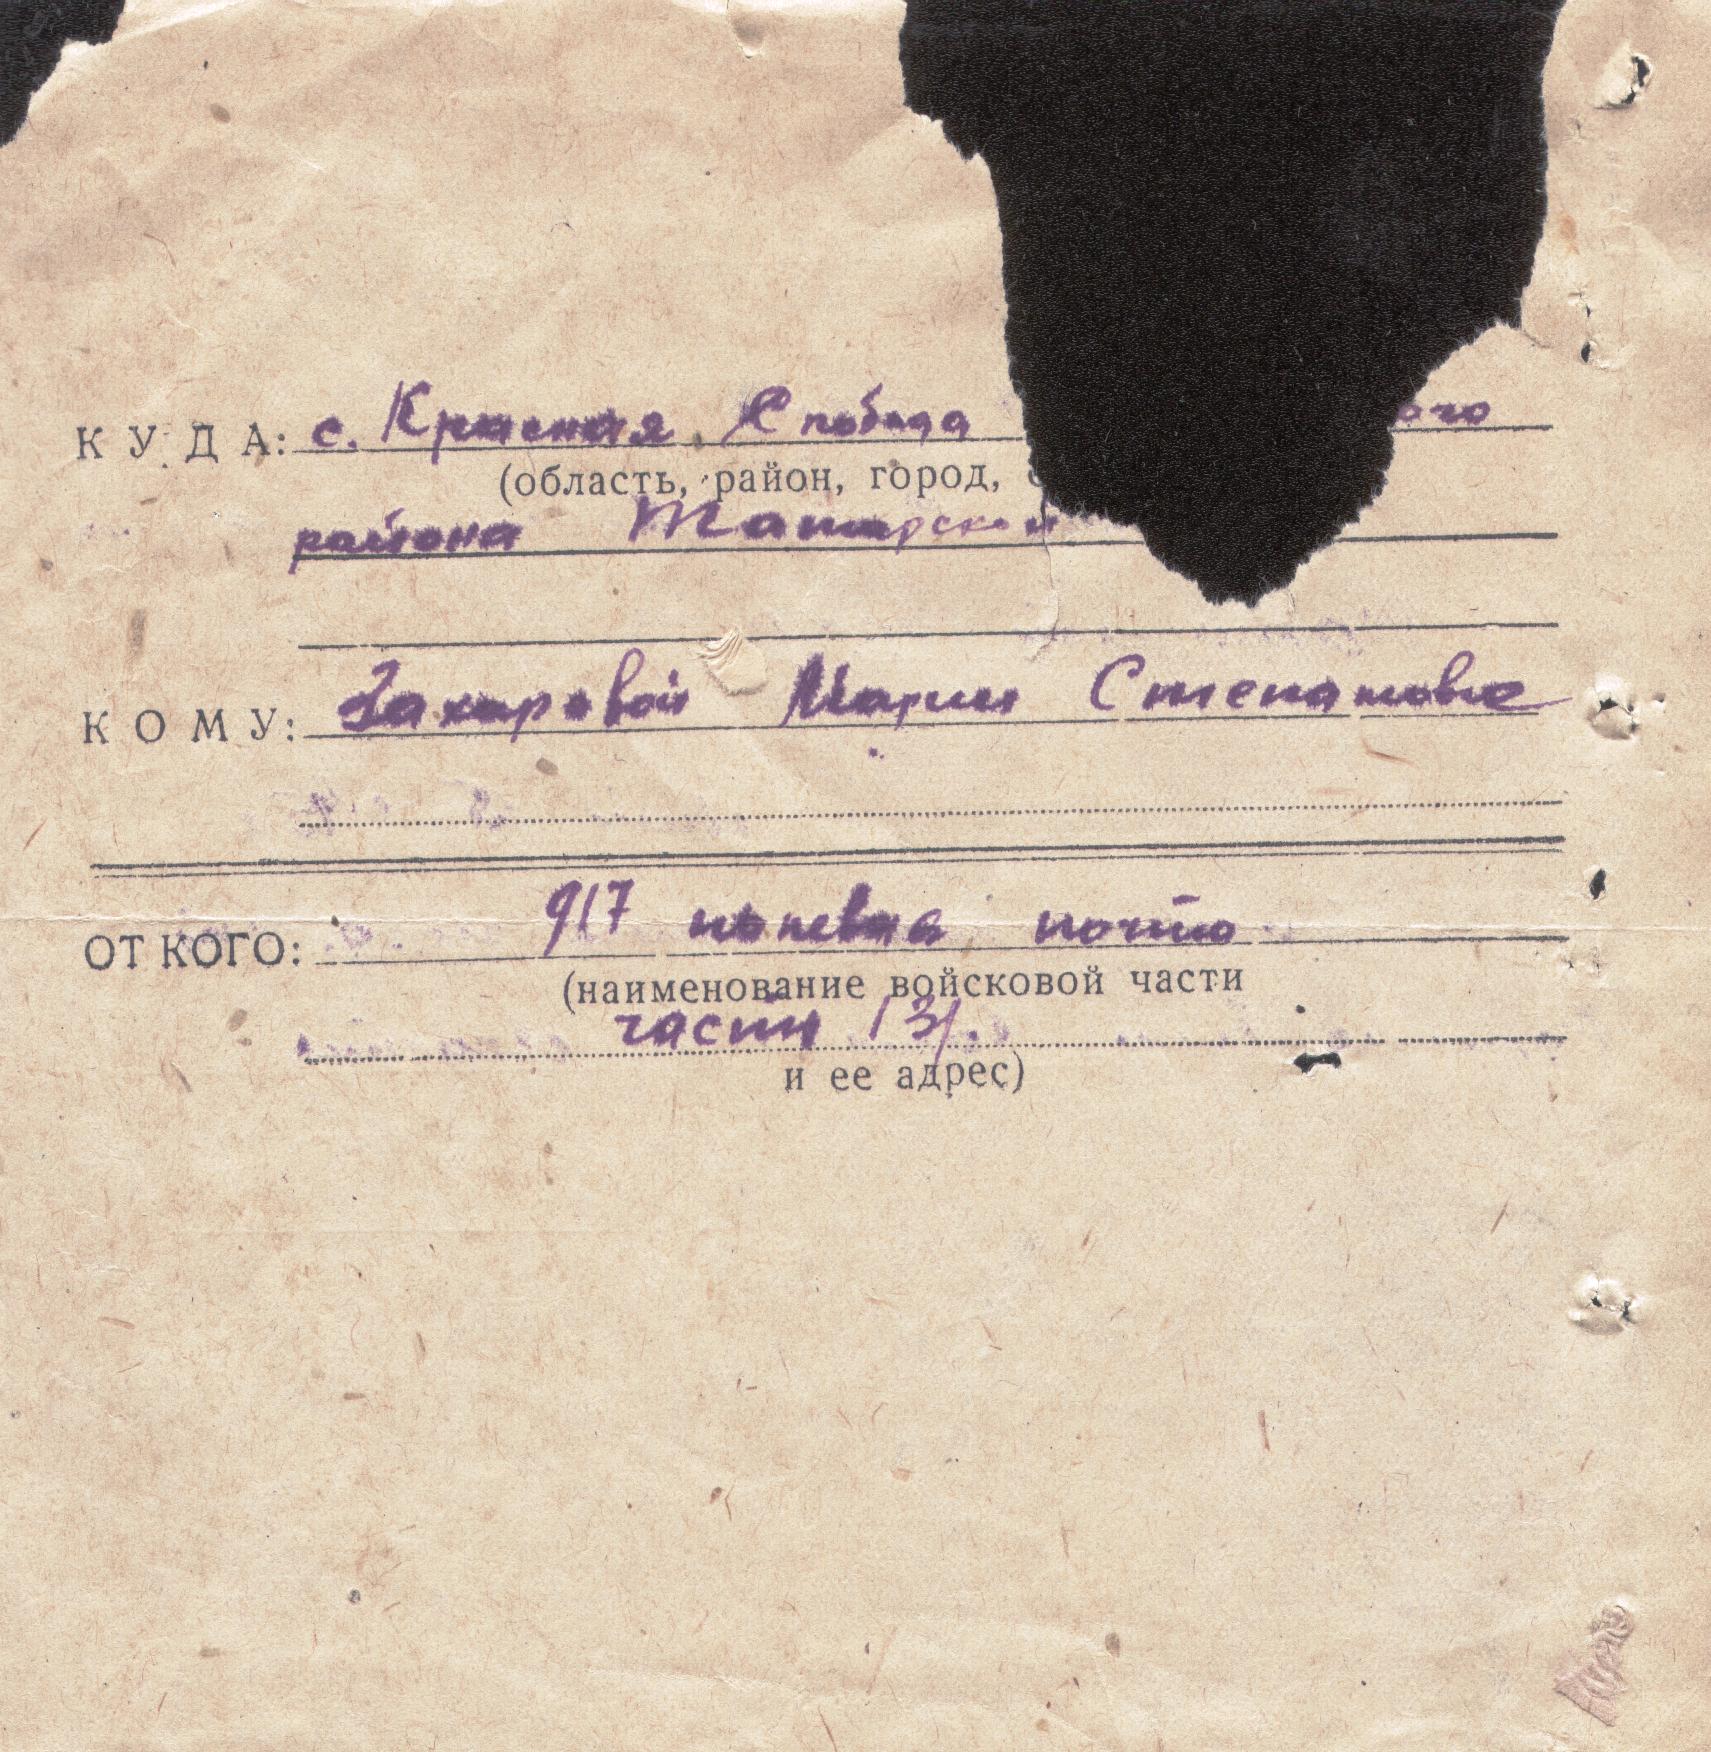 КУДА: с. Красная Слобода ого
(область, район, город,
района Татарской
КОМУ: Захаровой Марии Степановне
ОТ КОГО: 917 полевая почта
(наименование войсковой части
часть 131.
и ее адрес)